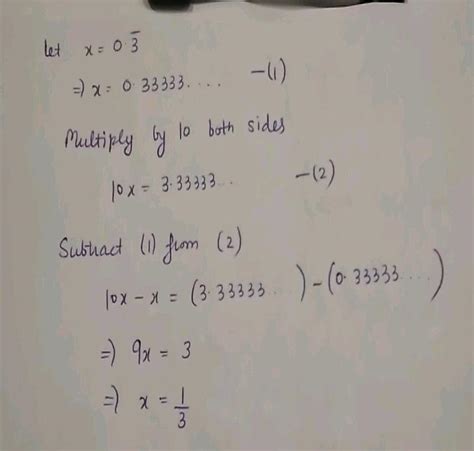 let x = 0.3̅
=) x = 0.33333.... —(1)
Multiply by 10 both sides
10x = 3.33333... —(2)
Subtract (1) from (2)
10x - x = (3.33333...) - (0.33333....)
=) 9x = 3
=) x = 1/3